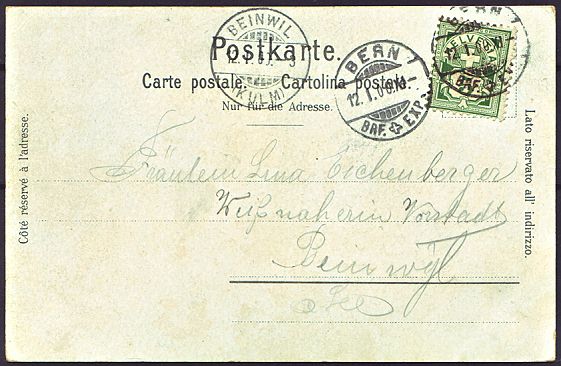 Postkarte.
Carte postale. Cartolina postale.
Nur für die Adresse.
BEINWIL
(KULM)
BERN 1
12.I.06.10-
BRF. EXP.
BERN 1
HELVETIA
BRF. EXP.
Côté réservé à l'adresse.
Lato riservato all' indirizzo.
Fräulein Lina Eichenberger
Weißnäherin Vorstadt
Beinwyl
See